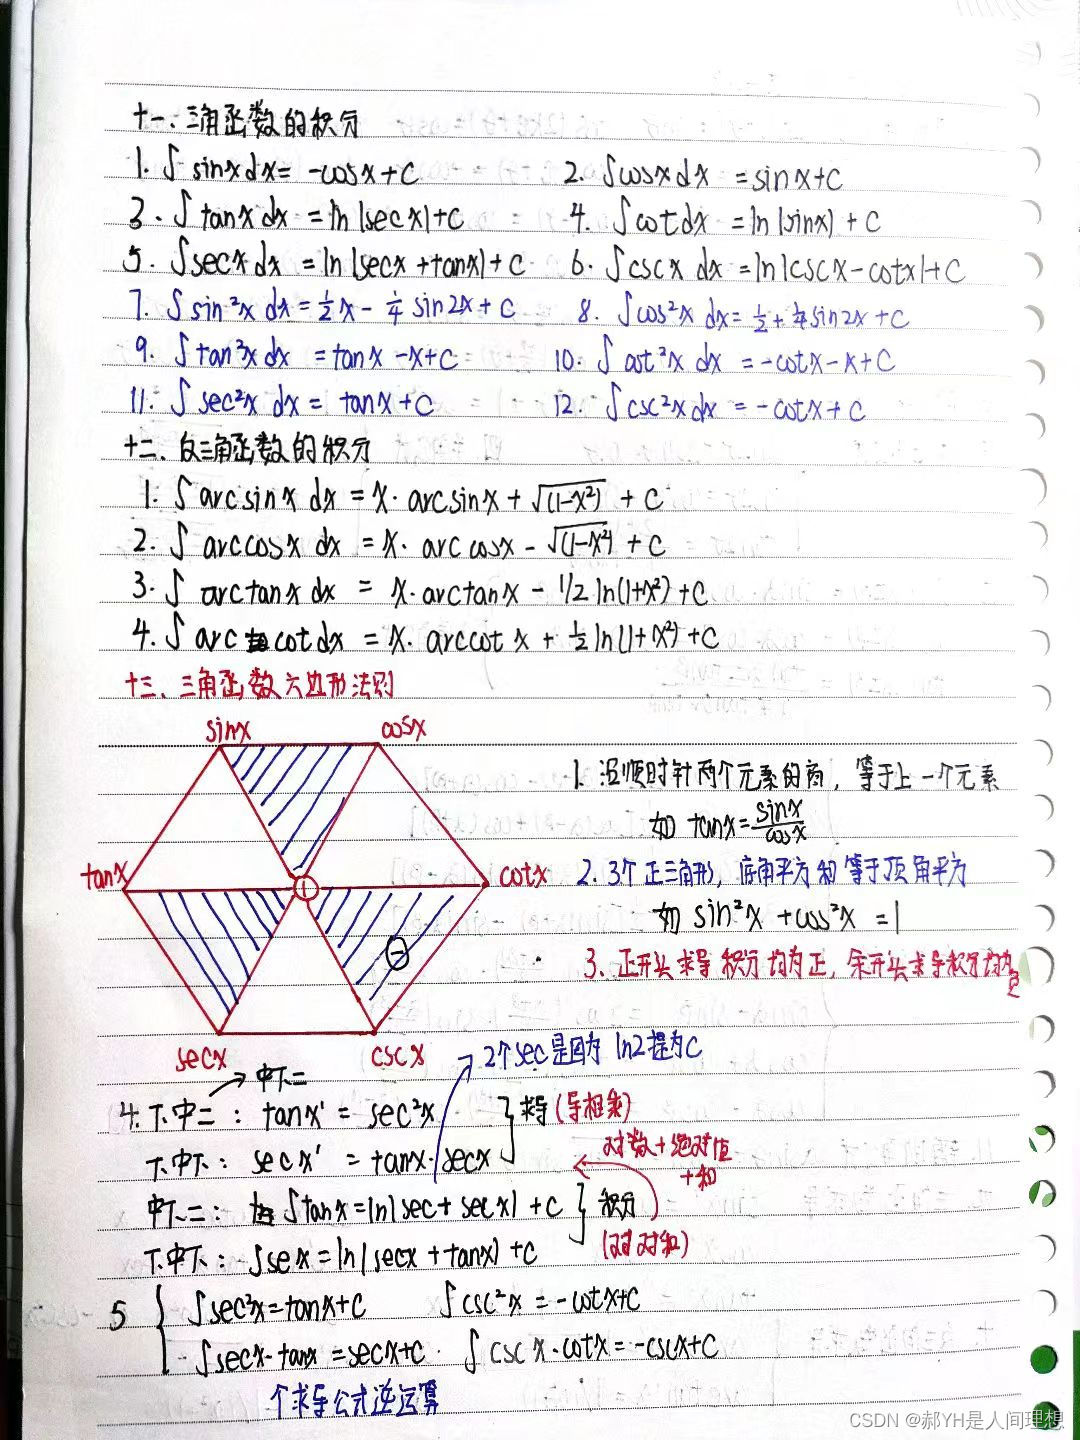 十一、三角函数的积分
1. ∫ sinx dx = -cosx + C 2. ∫cosx dx = sinx+C
3. ∫ tanx dx = ln |secx|+C 4. ∫cotdx = ln |sinx| + C
5. ∫secx dx = ln |secx + tanx| + C 6. ∫cscx dx = ln|cscx - cotx|+C
7. ∫ sin²x dx = ½x - ¼ sin2x + C 8. ∫cos²x dx = ½ + ¼ sin2x + C
9. ∫tan²x dx = tanx - x + C 10. ∫ cot²x dx = -cotx - x + C
11. ∫ sec²x dx = tanx + C 12. ∫csc²x dx = -cotx + C
十二、反三角函数的积分
1. ∫ arcsinx dx = x· arcsinx + √(1-x²) + C
2. ∫ arccosx dx = x· arccosx - √(1-x²) + C
3. ∫ arctanx dx = x· arctanx - 1/2 ln(1+x²) + C
4. ∫ arc cotdx = x· arccot x + ½ ln(1+x²) + C
十三、三角函数六边形法则
sinx cosx
1. 沿顺时针两个元素的商，等于上一个元素
如 tanx = sinx/cosx
tanx 1 cotx
2. 3个正三角形，底角平方和等于顶角平方
如 sin²x + cos²x = 1
3. 正开头求导积分均为正，余开头求导积分均为负
secx cscx
2个sec是因为 ln2提为C
中下二
4. 下中二： tanx' = sec²x 求导 (导相乘)
下中下： secx' = tanx·secx
对数+绝对值+和
中下二： ∫tanx = ln|sec + secx| + C 积分
下中下： ∫sex = ln|secx + tanx| + C (对对和)
5 ∫sec²x = tanx+C ∫csc²x = -cotx+C
∫secx·tanx = secx+C ∫ cscx·cotx = -cscx+C
个求导公式逆运算
CSDN @郝YH是人间理想